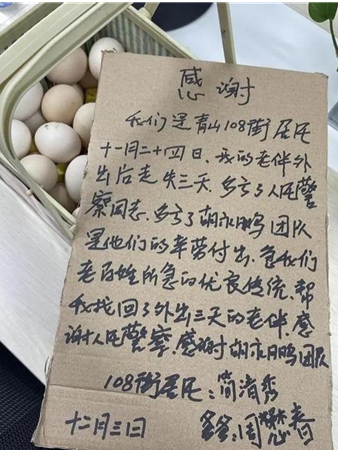 感谢
我们是青山108街居民
十一月二十四日、我的老伴外
出后走失三天，多亏了人民警
察同志、多亏了胡永鹏团队
是他们的辛劳付出、急我们
老百姓所急的优良传统、帮
我找回了外出三天的老伴、感
谢人民警察、感谢胡永鹏团队
108街居民：简清秀
周懋春
十二月三日